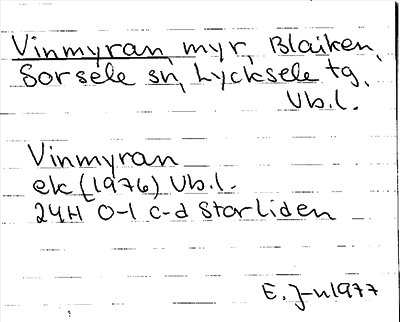 Vinmyran, myr, Blaiken,
Sorsele sn, Lycksele tg,
Vb.l.
Vinmyran
ek (1976) Vb.l.
24H 0-1 c-d Storliden
E. J-n 1977